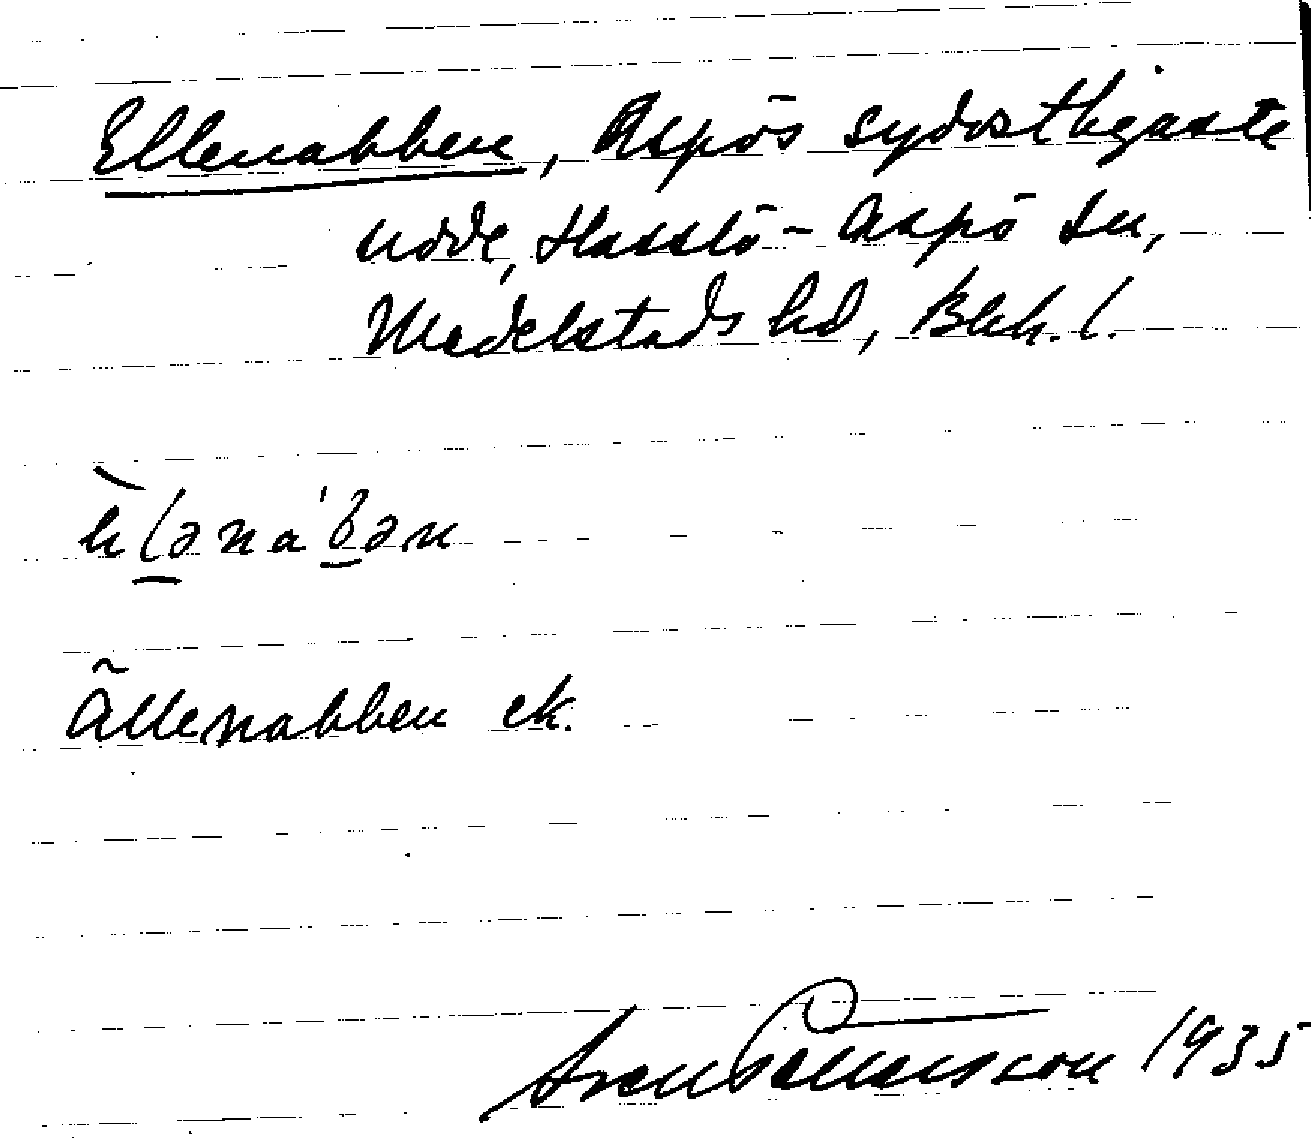 Ellenabben, Aspös sydostligaste
udde, Hasslö-Aspö sn,
Medelstads hd, Blek. l.
Ällenabben ek.
Sven 1935